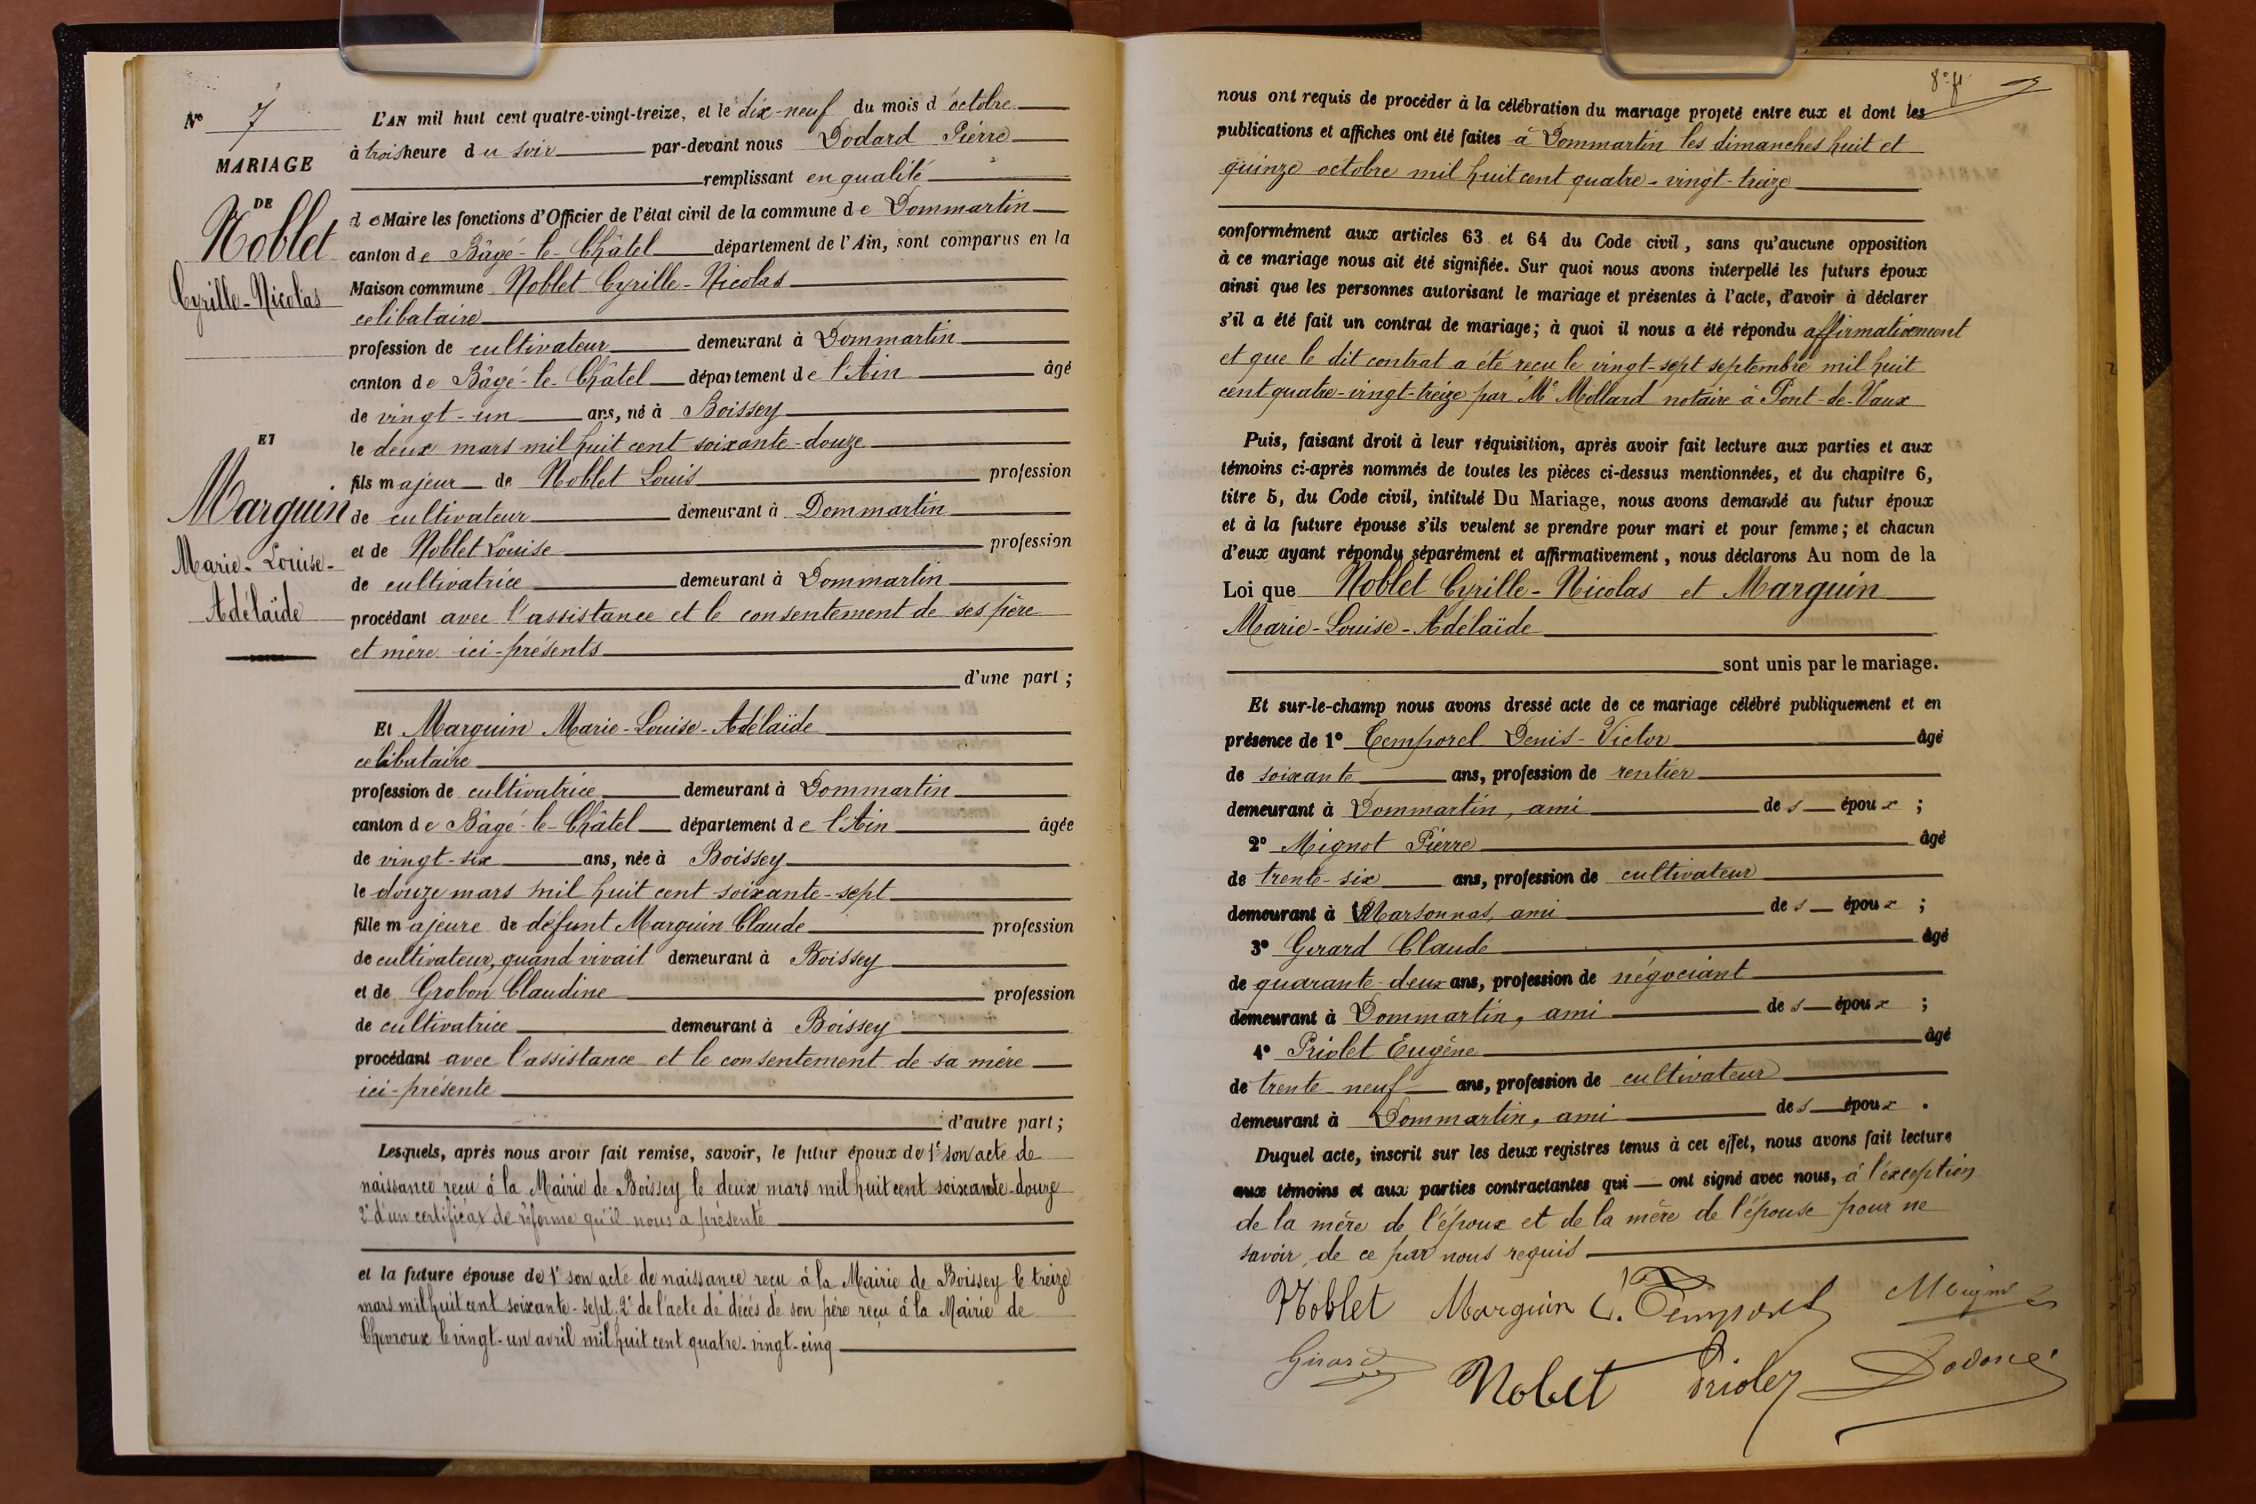 N° 7
MARIAGE
DE
Noblet
Cyrille-Nicolas
ET
Marguin
Marie-Louise-
Adélaïde
L'AN mil huit cent quatre-vingt-treize, et le dix-neuf du mois d'octobre
à trois heure du soir par-devant nous Dodard Pierre
remplissant en qualité
de Maire les fonctions d'Officier de l'état civil de la commune de Dommartin
canton de Bâgé-le-Châtel département de l'Ain, sont comparus en la
Maison commune Noblet Cyrille-Nicolas
celibataire
profession de cultivateur demeurant à Dommartin
canton de Bâgé-le-Châtel département de l'Ain âgé
de vingt-un ans, né à Boissey
le deux mars mil huit cent soixante-douze
fils majeur de Noblet Louis profession
de cultivateur demeurant à Dommartin
et de Noblet Louise profession
de cultivatrice demeurant à Dommartin
procédant avec l'assistance et le consentement de ses père
et mère ici-présents
d'une part ;
Et Marguin Marie-Louise-Adélaïde
celibataire
profession de cultivatrice demeurant à Dommartin
canton de Bâgé-le-Châtel département de l'Ain âgée
de vingt-six ans, née à Boissey
le douze mars mil huit cent soixante-sept
fille majeure de défunt Marguin Claude profession
de cultivateur, quand vivait demeurant à Boissey
et de Grobon Claudine profession
de cultivatrice demeurant à Boissey
procédant avec l'assistance et le consentement de sa mère
ici-présente
d'autre part ;
Lesquels, après nous avoir fait remise, savoir, le futur époux de 1° son acte de
naissance reçu à la Mairie de Boissey le deux mars mil huit cent soixante-douze
2° d'un certificat de réforme qu'il nous a présenté
et la future épouse de 1° son acte de naissance reçu à la Mairie de Boissey le treize
mars mil huit cent soixante-sept, 2° de l'acte de décès de son père reçu à la Mairie de
Chevroux le vingt-un avril mil huit cent quatre-vingt-cinq
8e ft
nous ont requis de procéder à la célébration du mariage projeté entre eux et dont les
publications et affiches ont été faites à Dommartin les dimanches huit et
quinze octobre mil huit cent quatre-vingt-treize
conformément aux articles 63 et 64 du Code civil, sans qu'aucune opposition
à ce mariage nous ait été signifiée. Sur quoi nous avons interpellé les futurs époux
ainsi que les personnes autorisant le mariage et présentes à l'acte, d'avoir à déclarer
s'il a été fait un contrat de mariage; à quoi il nous a été répondu affirmativement
et que le dit contrat a été reçu le vingt-sept septembre mil huit
cent quatre-vingt-treize par Me Mollard notaire à Pont-de-Vaux
Puis, faisant droit à leur réquisition, après avoir fait lecture aux parties et aux
témoins ci-après nommés de toutes les pièces ci-dessus mentionnées, et du chapitre 6,
titre 5, du Code civil, intitulé Du Mariage, nous avons demandé au futur époux
et à la future épouse s'ils veulent se prendre pour mari et pour femme; et chacun
d'eux ayant répondu séparément et affirmativement, nous déclarons Au nom de la
Loi que Noblet Cyrille-Nicolas et Marguin
Marie-Louise-Adélaïde
sont unis par le mariage.
Et sur-le-champ nous avons dressé acte de ce mariage célébré publiquement et en
présence de 1° Temporel Denis-Victor âgé
de soixante ans, profession de rentier
demeurant à Dommartin, ami des époux ;
2° Mignot Pierre âgé
de trente-six ans, profession de cultivateur
demeurant à Marsonnas, ami des époux ;
3° Gerard Claude âgé
de quarante-deux ans, profession de négociant
demeurant à Dommartin, ami des époux ;
4° Priolet Eugène âgé
de trente neuf ans, profession de cultivateur
demeurant à Dommartin, ami des époux .
Duquel acte, inscrit sur les deux registres tenus à cet effet, nous avons fait lecture
aux témoins et aux parties contractantes qui ont signé avec nous, à l'exception
de la mère de l'époux et de la mère de l'épouse pour ne
savoir, de ce par nous requis
Noblet Marguin Temporel
Girard Noblet Priolet